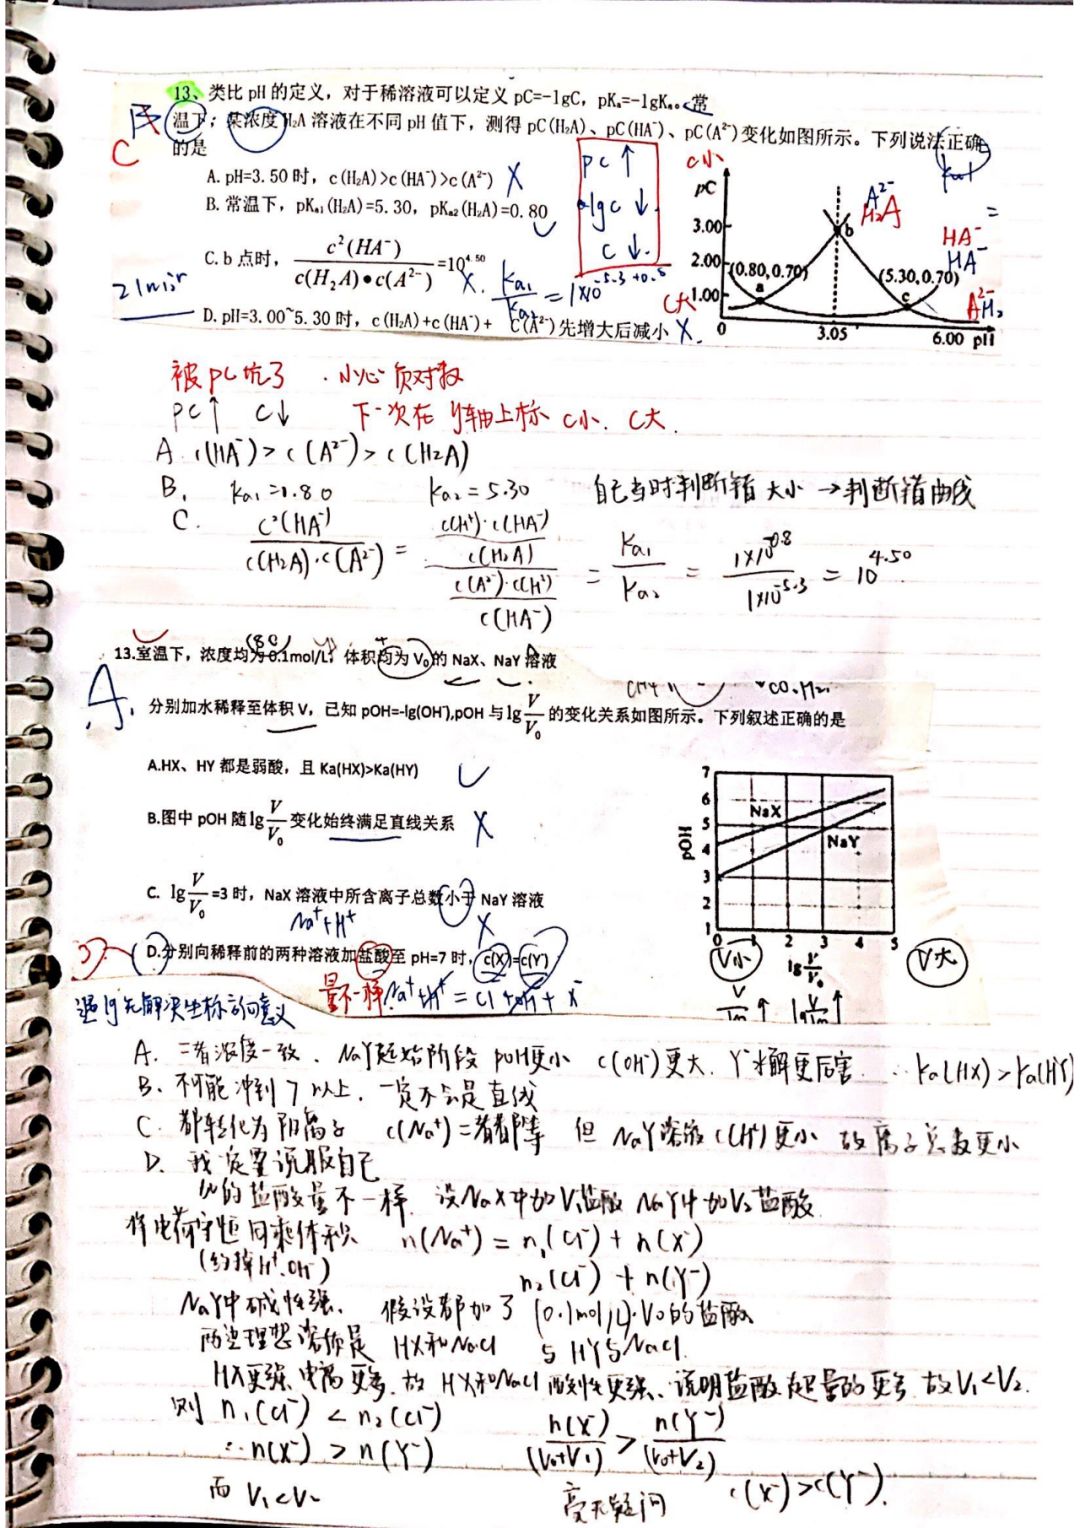 13、类比 pH 的定义，对于稀溶液可以定义 pC=-lgC，pKₐ=-lgKₐ。常
温下，某浓度 H₂A 溶液在不同 pH 值下，测得 pC(H₂A)、pC(HA⁻)、pC(A²⁻)变化如图所示。下列说法正确
的是
C
A. pH=3.50 时，c(H₂A)>c(HA⁻)>c(A²⁻) X
B. 常温下，pKₐ₁(H₂A)=5.30，pKₐ₂(H₂A)=0.80
C. b 点时，c²(HA⁻)/c(H₂A)•c(A²⁻)=10⁴·⁵⁰ X.
D. pH=3.00~5.30 时，c(H₂A)+c(HA⁻)+ C(A²⁻)先增大后减小 X.
Ka₁/Ka₂ = 1×10^-5.3+0.8
pC↑
-lgC↓
C↓.
C小
C大
pC
3.00
2.00
1.00
0
3.05
6.00 pH
(0.80,0.70)
a
b
(5.30,0.70)
c
A²⁻
H₂A
HA⁻
HA⁻
A²⁻
被pC坑了 . 小心负对数
pC↑ C↓ 下一次在y轴上标 C小. C大.
A. c(HA⁻)>c(A²⁻)>c(H₂A)
B. Ka₁=0.80 Ka₂=5.30 自己当时判断错大小→判断错曲线
C. c²(HA⁻)/c(H₂A)·c(A²⁻) = [c(H⁺)·c(HA⁻)/c(H₂A)]/[c(A²⁻)·c(H⁺)/c(HA⁻)] = Ka₁/Ka₂ = 1×10^-0.8/1×10^-5.3 = 10^4.50
13.室温下，浓度均为 0.1mol/L，体积均为 V₀的 NaX、NaY 溶液
A.
分别加水稀释至体积 V，已知 pOH=-lg(OH⁻),pOH 与lg V/V₀ 的变化关系如图所示。下列叙述正确的是
A.HX、HY 都是弱酸，且 Ka(HX)>Ka(HY)
B.图中 pOH 随lg V/V₀ 变化始终满足直线关系 X
C. lg V/V₀=3 时，NaX 溶液中所含离子总数小于 NaY 溶液 X
Na⁺+H⁺
D.分别向稀释前的两种溶液加盐酸至 pH=7 时，c(X⁻)=c(Y⁻)
量不一样 Na⁺+H⁺=Cl⁻+OH⁻+X⁻
pOH
7
6
5
4
3
2
1
0 1 2 3 4 5
NaX
NaY
lg V/V₀
V小
V大
A. 二者浓度一致、NaY起始阶段 pOH更小 c(OH⁻)更大. Y⁻水解更厉害 ∴Ka(HX)>Ka(HY)
B. 不可能冲到7以上. 一定不会是直线
C. 都转化为阳离子 c(Na⁺)=者都等 但 NaY溶液c(H⁺)更小 故离子总数更小
D. 我定要说服自己
加的盐酸量不一样. 设NaX中加V₁盐酸 NaY中加V₂盐酸
将电荷守恒同乘体积 n(Na⁺)=n₁(Cl⁻)+n(X⁻)
(约掉H⁺.OH⁻) n₂(Cl⁻)+n(Y⁻)
NaY中碱性强、假设都加了(0.1mol/L)·V₀的盐酸
两边理想溶液是 HX和NaCl 与HY与NaCl.
HX更强.电离更多.故HX和NaCl酸性更强、说明盐酸起量的更多 故V₁<V₂.
则 n₁(Cl⁻)<n₂(Cl⁻)
∴n(X⁻)>n(Y⁻) n(X⁻)/(V₀+V₁) > n(Y⁻)/(V₀+V₂)
而 V₁<V₂ 毫无疑问 c(X⁻)>c(Y⁻).